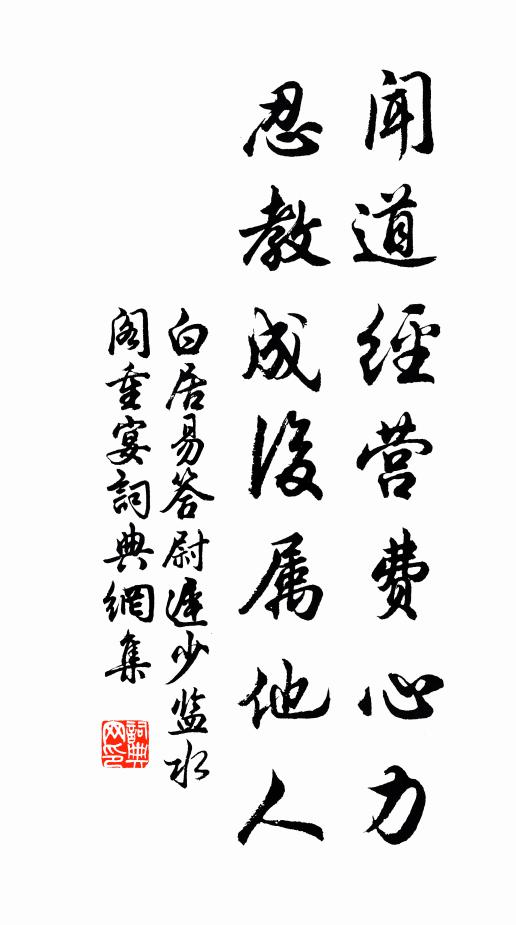 闻道经营费心力
忍教成後属他人
白居易答尉遲少监水
阁重宴詞典網集
詞典
网印